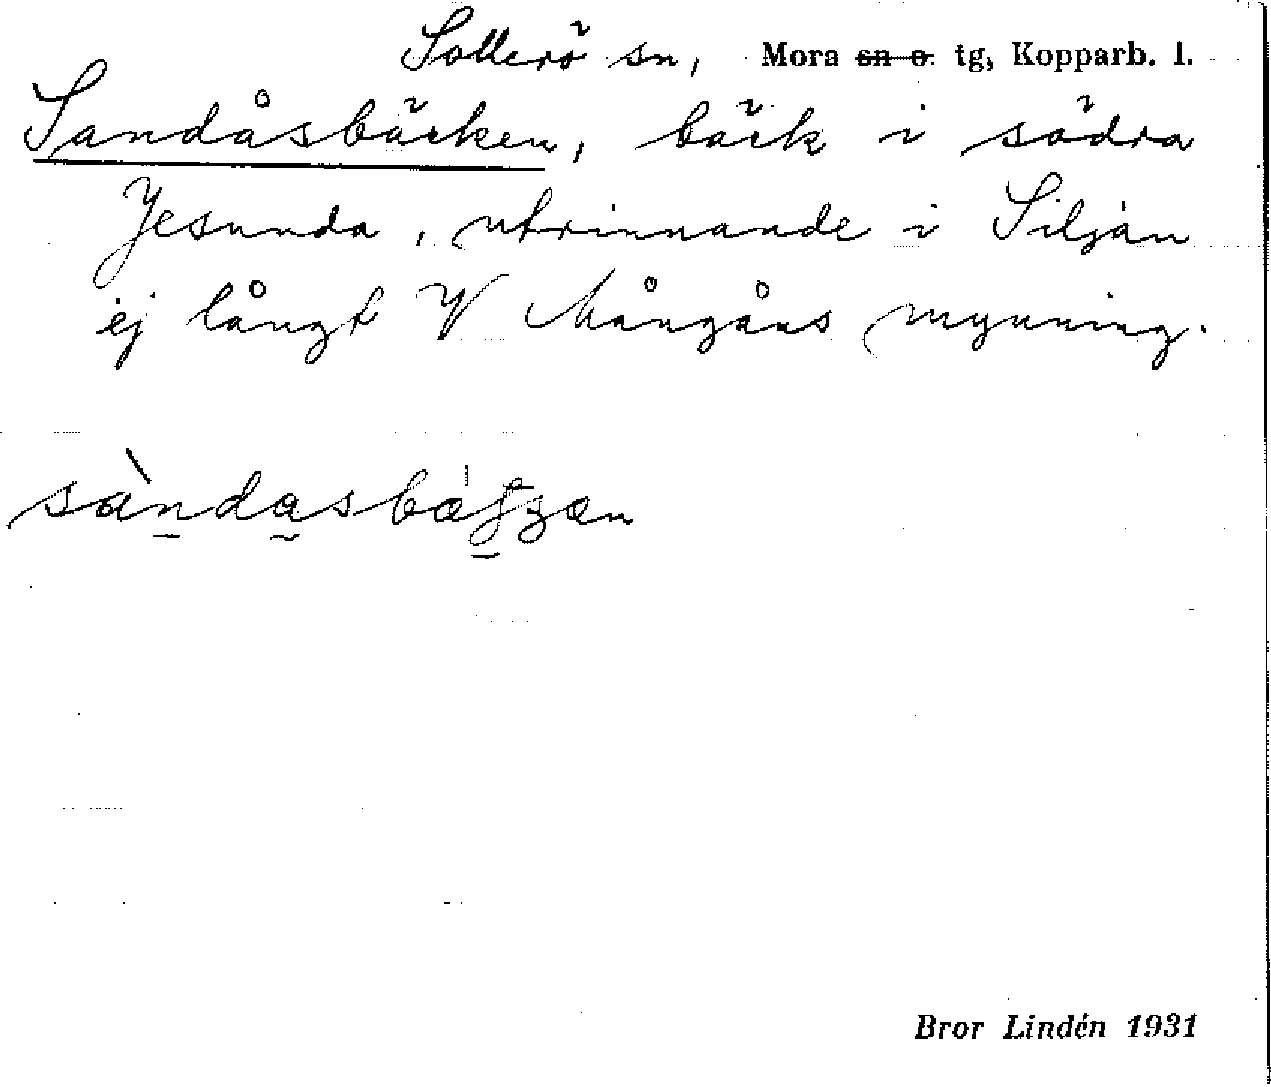 Sollerö sn, Mora ~~sn o.~~ tg, Kopparb. l.
Sandåsbäcken, bäck i södra
Jesunda, utrinnande i Siljan
ej långt V Mångåns mynning.
Bror Lindén 1931